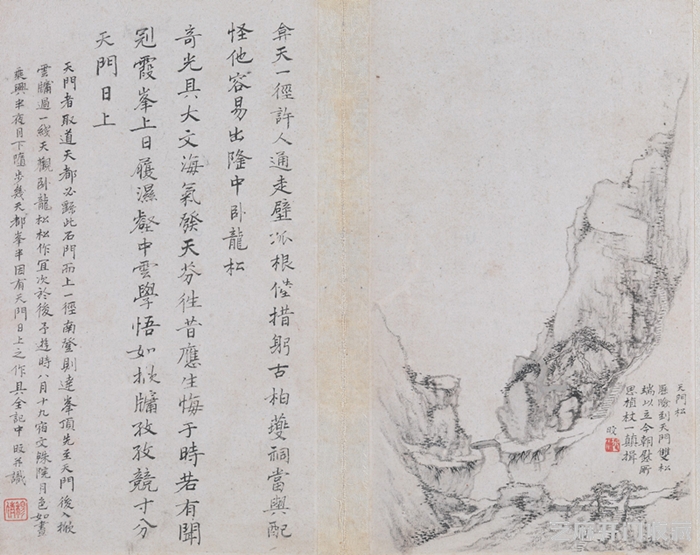 天門松
歷險到天門雙松
端以立今朝慰所
思植杖一顛揖
旼
弇天一徑許人通走壁根措躬古柏夔祠當與配
怪他容易出隆中臥龍松
奇光具大文海氣發天芬往昔應生悔于時若有聞
冠霞峯上日履濕壑中雲學悟如牖孜孜競寸分
天門日上
天門者取道天都必繇此石門而上一徑南登則達峯頂先至天門後入
雲牖過一綫天觀臥龍松松作宜次於後予遊時八月十九宿文殊院月色如晝
乘興半夜月下隨步幾天都峯半因有天門日上之作具全記中旼并識